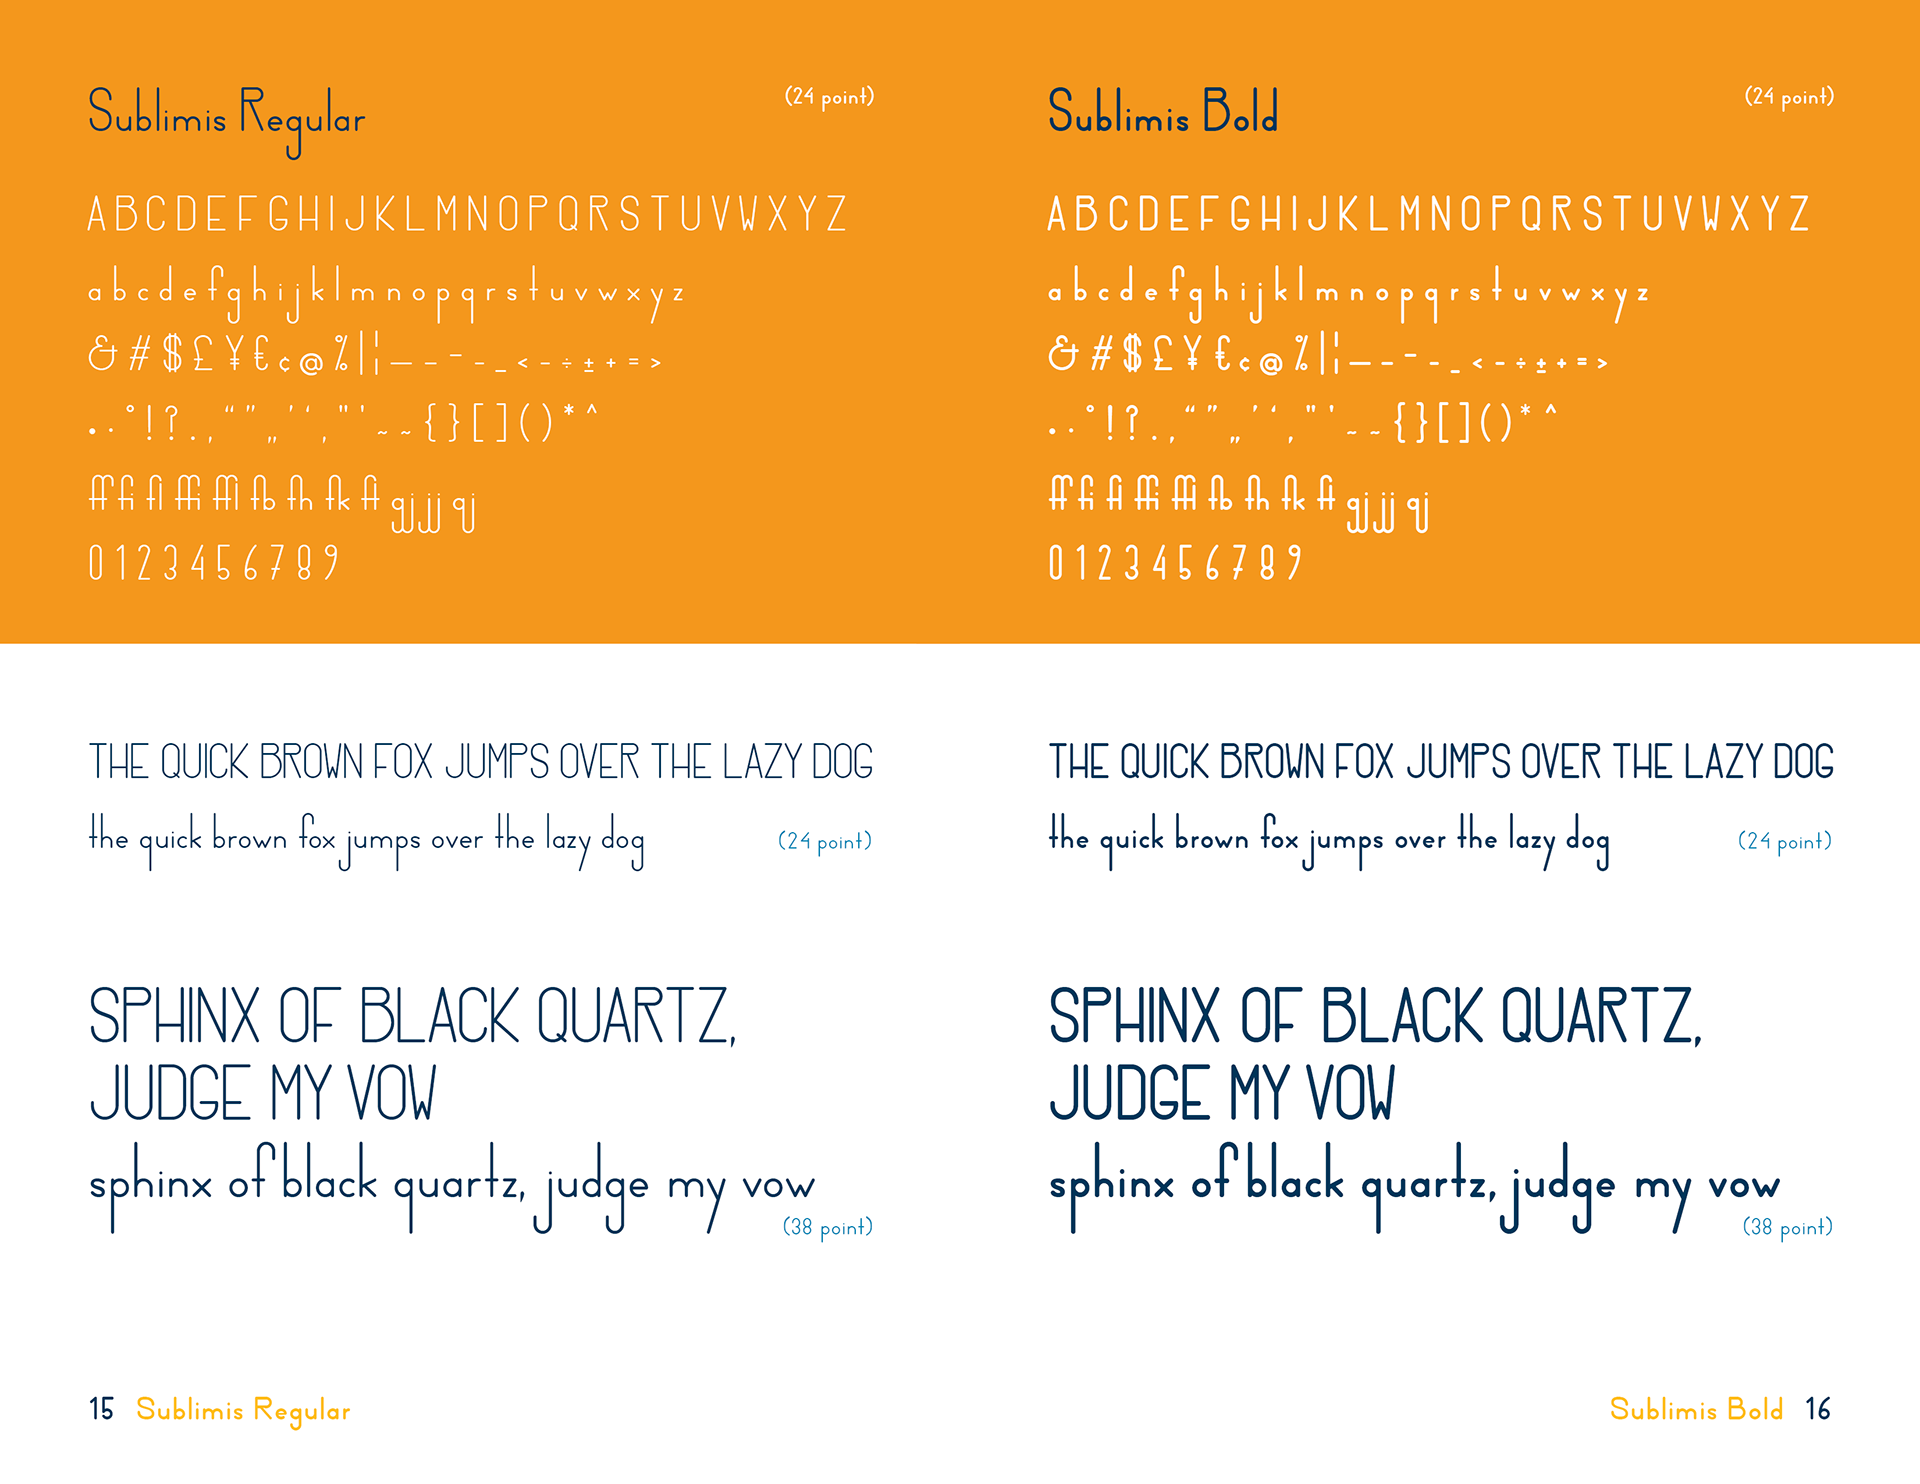 Sublimis Regular (24 point)
A B C D E F G H I J K L M N O P Q R S T U V W X Y Z
a b c d e f g h i j k l m n o p q r s t u v w x y z
& # $ £ ¥ € ¢ @ % | ¦ — – – - _ < - ÷ ± + = >
• · ° ! ? . , “ ” „ ’ ‘ ‚ " ' ~ ~ { } [ ] ( ) * ^
ff fi fl ffi ffl fb fh fk fl gj jj qj
0 1 2 3 4 5 6 7 8 9
THE QUICK BROWN FOX JUMPS OVER THE LAZY DOG
the quick brown fox jumps over the lazy dog (24 point)
SPHINX OF BLACK QUARTZ,
JUDGE MY VOW
sphinx of black quartz, judge my vow
(38 point)
15 Sublimis Regular
Sublimis Bold (24 point)
A B C D E F G H I J K L M N O P Q R S T U V W X Y Z
a b c d e f g h i j k l m n o p q r s t u v w x y z
& # $ £ ¥ € ¢ @ % | ¦ — – – - _ < - ÷ ± + = >
• · ° ! ? . , “ ” „ ’ ‘ ‚ " ' ~ ~ { } [ ] ( ) * ^
ff fi fl ffi ffl fb fh fk fl gj jj qj
0 1 2 3 4 5 6 7 8 9
THE QUICK BROWN FOX JUMPS OVER THE LAZY DOG
the quick brown fox jumps over the lazy dog (24 point)
SPHINX OF BLACK QUARTZ,
JUDGE MY VOW
sphinx of black quartz, judge my vow
(38 point)
Sublimis Bold 16